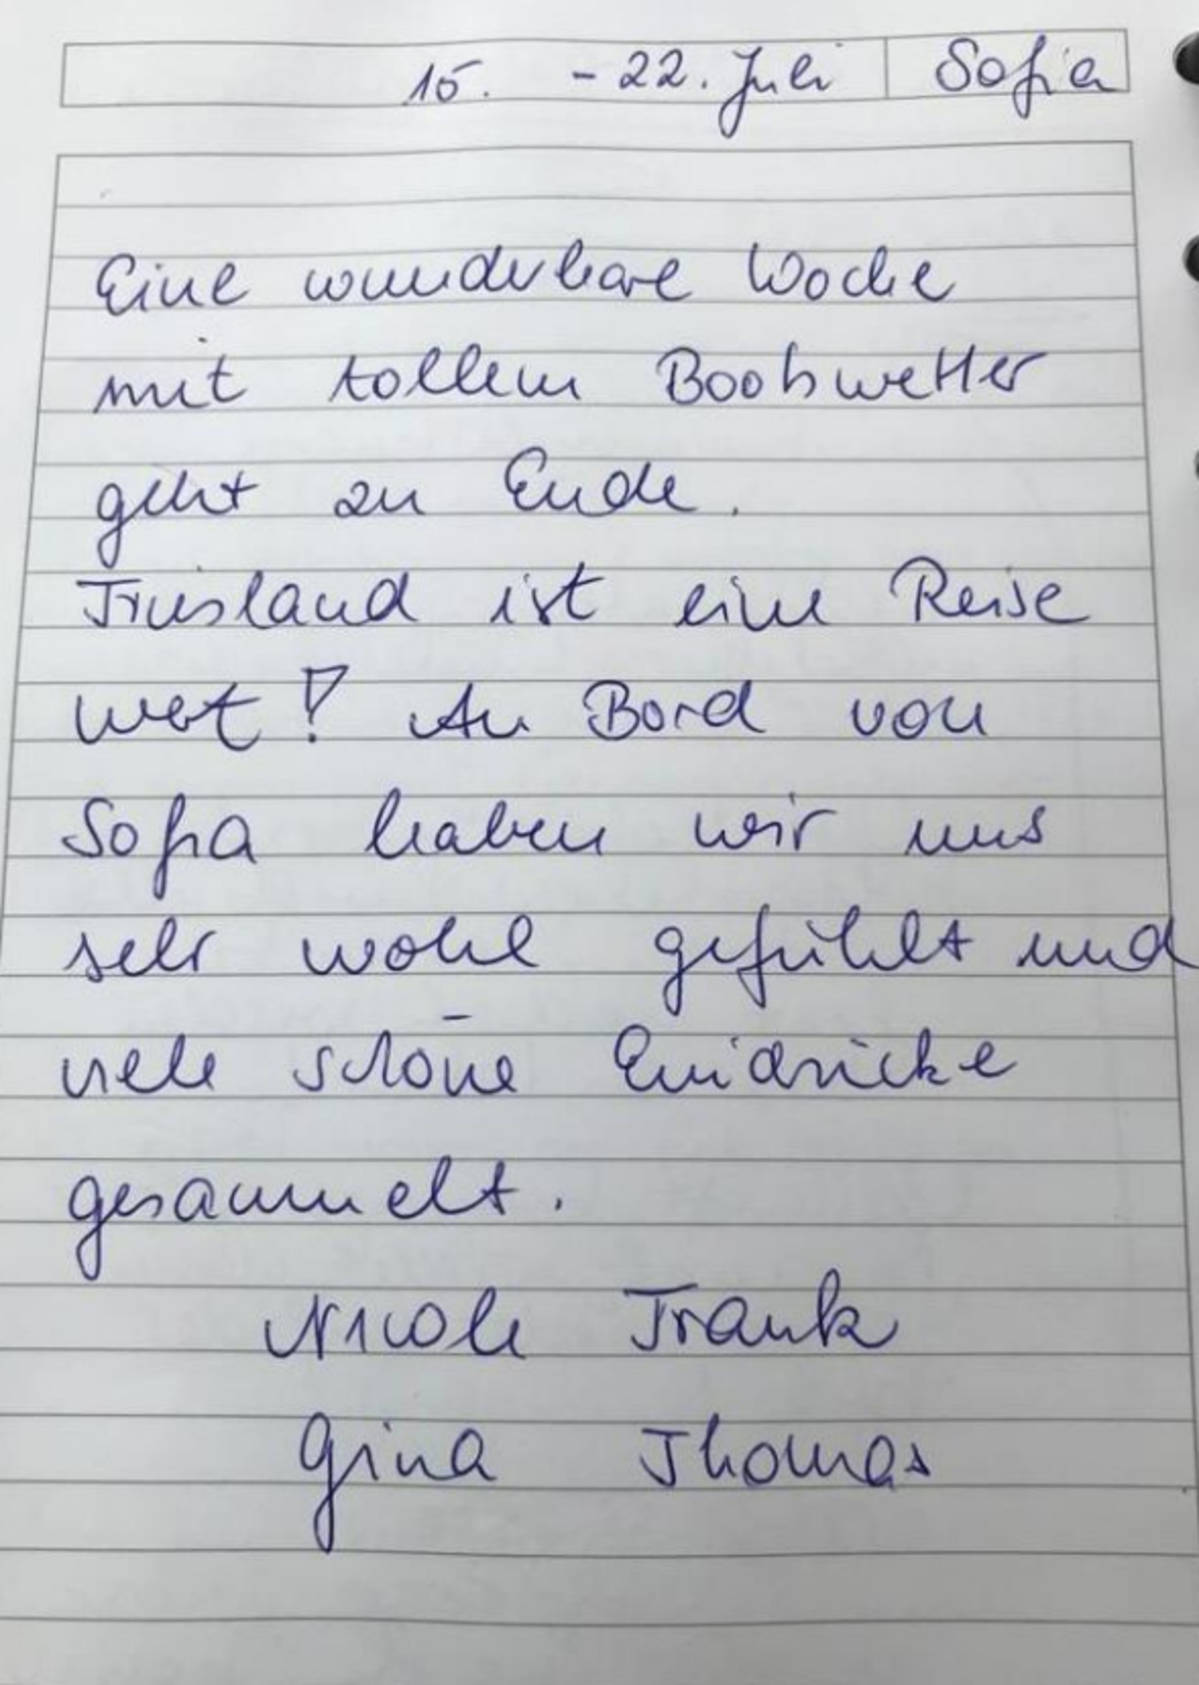 15. - 22. Juli Sofia
Eine wunderbare Woche
mit tollem Bootswetter
geht zu Ende.
Friesland ist eine Reise
wert! An Bord von
Sofia haben wir uns
sehr wohl gefühlt und
viele schöne Eindrücke
gesammelt.
Nicole Frank
Gina Thomas